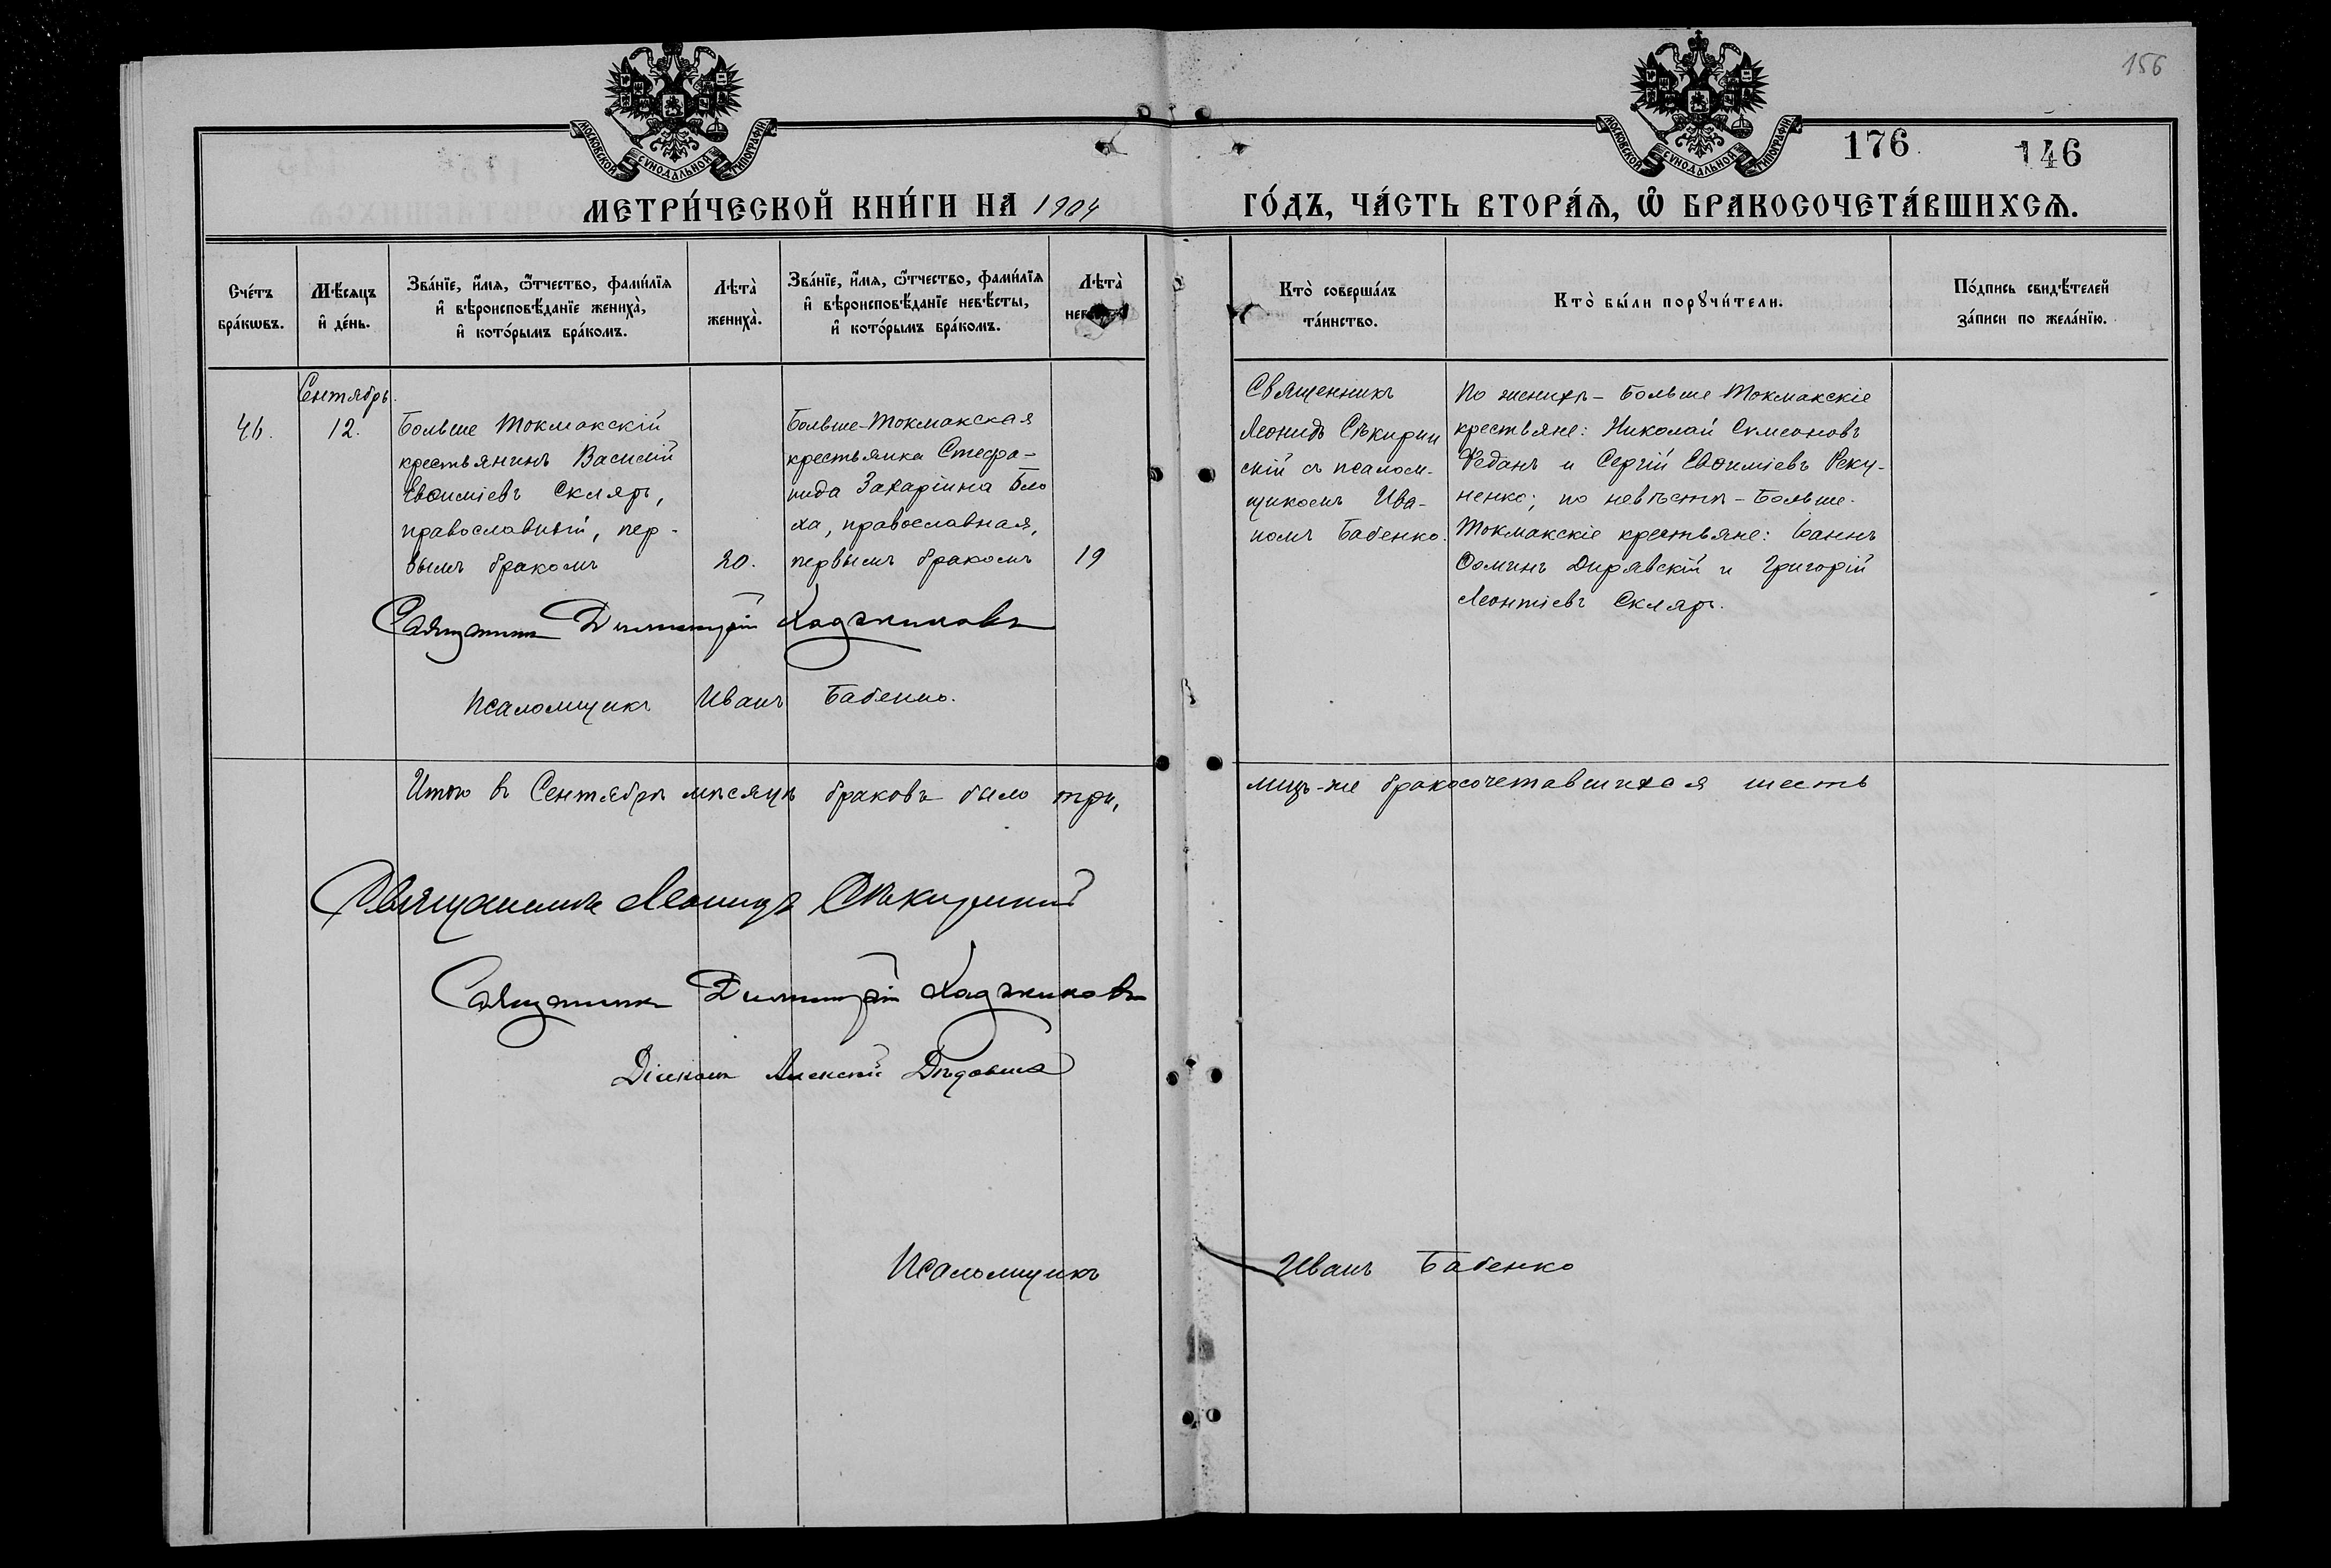 156
176
146
МОСКОВСКОЙ СѴНОДАЛЬНОЙ ТИПОГРАФІИ
МОСКОВСКОЙ СѴНОДАЛЬНОЙ ТИПОГРАФІИ
МЕТРИ́ЧЕСКОЙ КНИ́ГИ НА 1904 ГО́ДЪ, ЧА́СТЬ ВТОРА́Ѧ, Ѽ БРАКОСОЧЕТА́ВШИХСѦ.
Сче́тъ
бра́кѡвъ.
Мѣ́сяцъ
и҆ де́нь.
Зва́нїе, и҆́мя, ѻ҆́тчество, фами́лїя
и҆ вѣроисповѣ́данїе жениха̀,
и҆ кото́рымъ бра́комъ.
Лѣта̀
жениха̀.
Зва́нїе, и҆́мя, ѻ҆́тчество, фами́лїя
и҆ вѣроисповѣ́данїе невѣ́сты,
и҆ кото́рымъ бра́комъ.
Лѣта̀
Кто̀ соверша́лъ
та́инство.
Кто̀ бы́ли порꙋчи́тели.
По́дпись свидѣ́телей
за́писи по жела́нїю.
46.
Сентябрь.
12.
Больше Токмакскій
крестьянинъ Василій
Евѳиміевъ Скляръ,
православный, пер-
вымъ бракомъ
20.
Больше-Токмакская
крестьянка Стефа-
нида Захаріина Бло
ха, православная,
первымъ бракомъ
19
Священникъ
Леонидъ Сѣкирин
скій съ псалом-
щикомъ Ива-
номъ Бабенко.
По женихѣ - Больше Токмакскіе
крестьяне: Николай Симеоновъ
Феданъ и Сергій Евѳиміевъ Реку-
ненко; по невѣстѣ - Больше-
Токмакскіе крестьяне: Іоаннъ
Ѳоминъ Дирявскій и Григорій
Леонтіевъ Скляръ.
Священникъ Димитрій Хаджиновъ
Псаломщикъ Иванъ Бабенко.
Итого въ Сентябрѣ мѣсяцѣ браковъ было три, лицъ-же бракосочетавшихся шесть
Священникъ Леонидъ Сѣкиринскій
Священникъ Димитрій Хаджиновъ
Діаконъ Алексій
Псаломщикъ Иванъ Бабенко